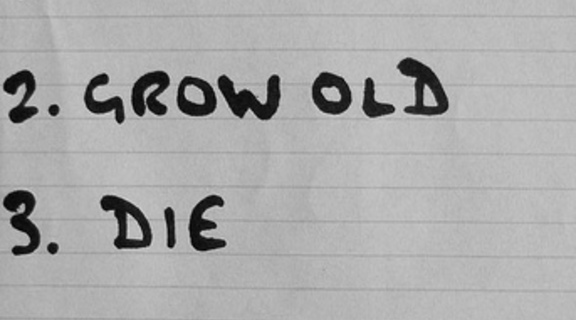 2. GROW OLD
3. DIE